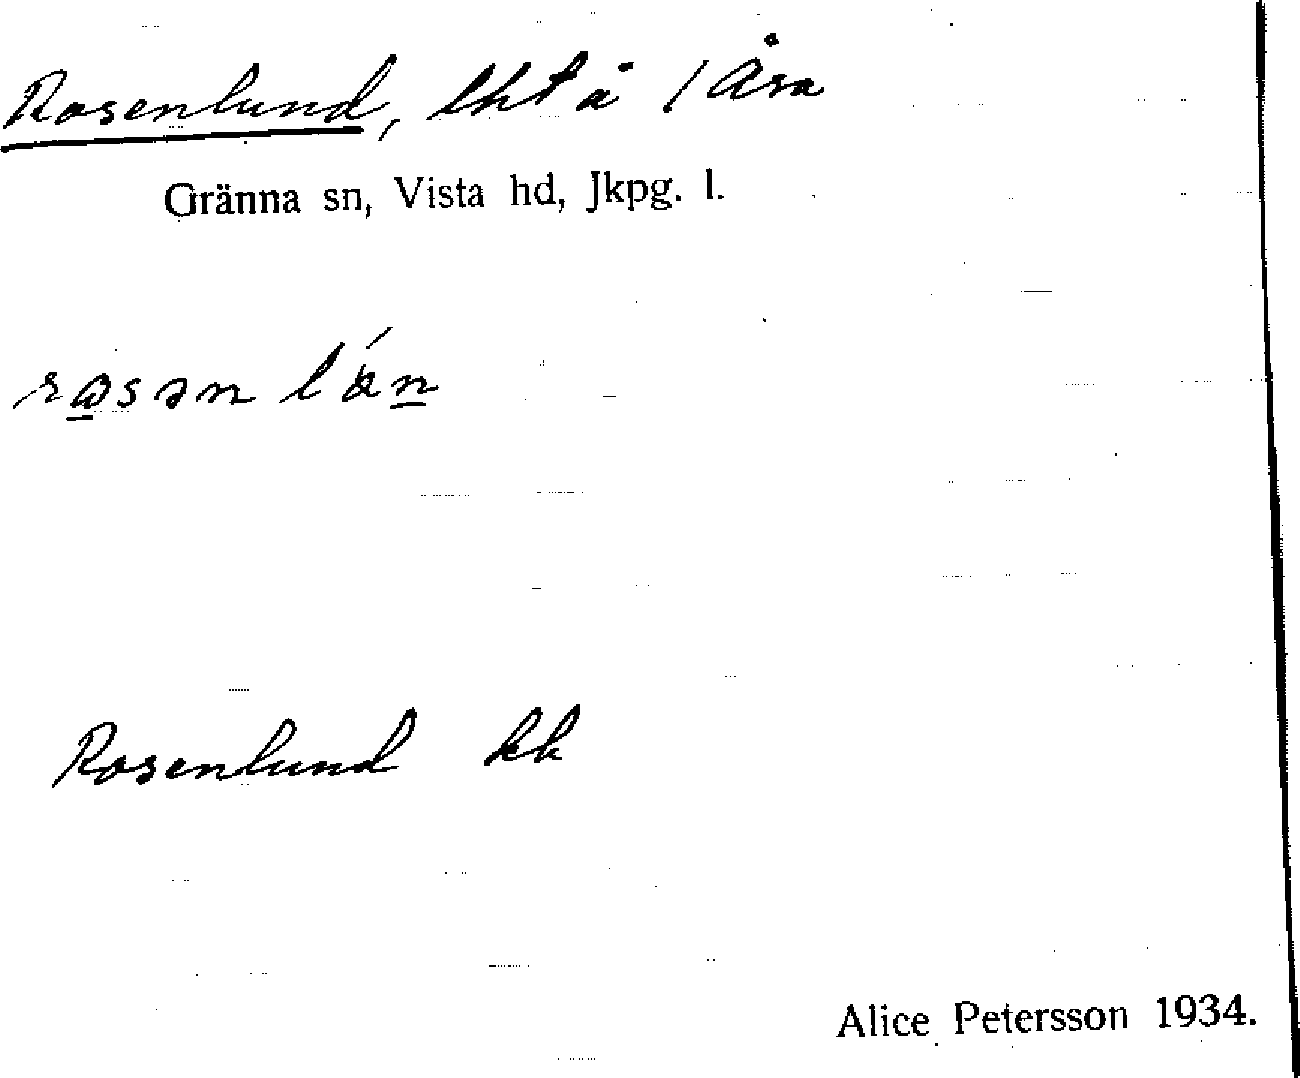 Rosenlund, lht å 1 Åsa
Gränna sn, Vista hd, Jkpg. l.
Rosenlund kk
Alice Petersson 1934.